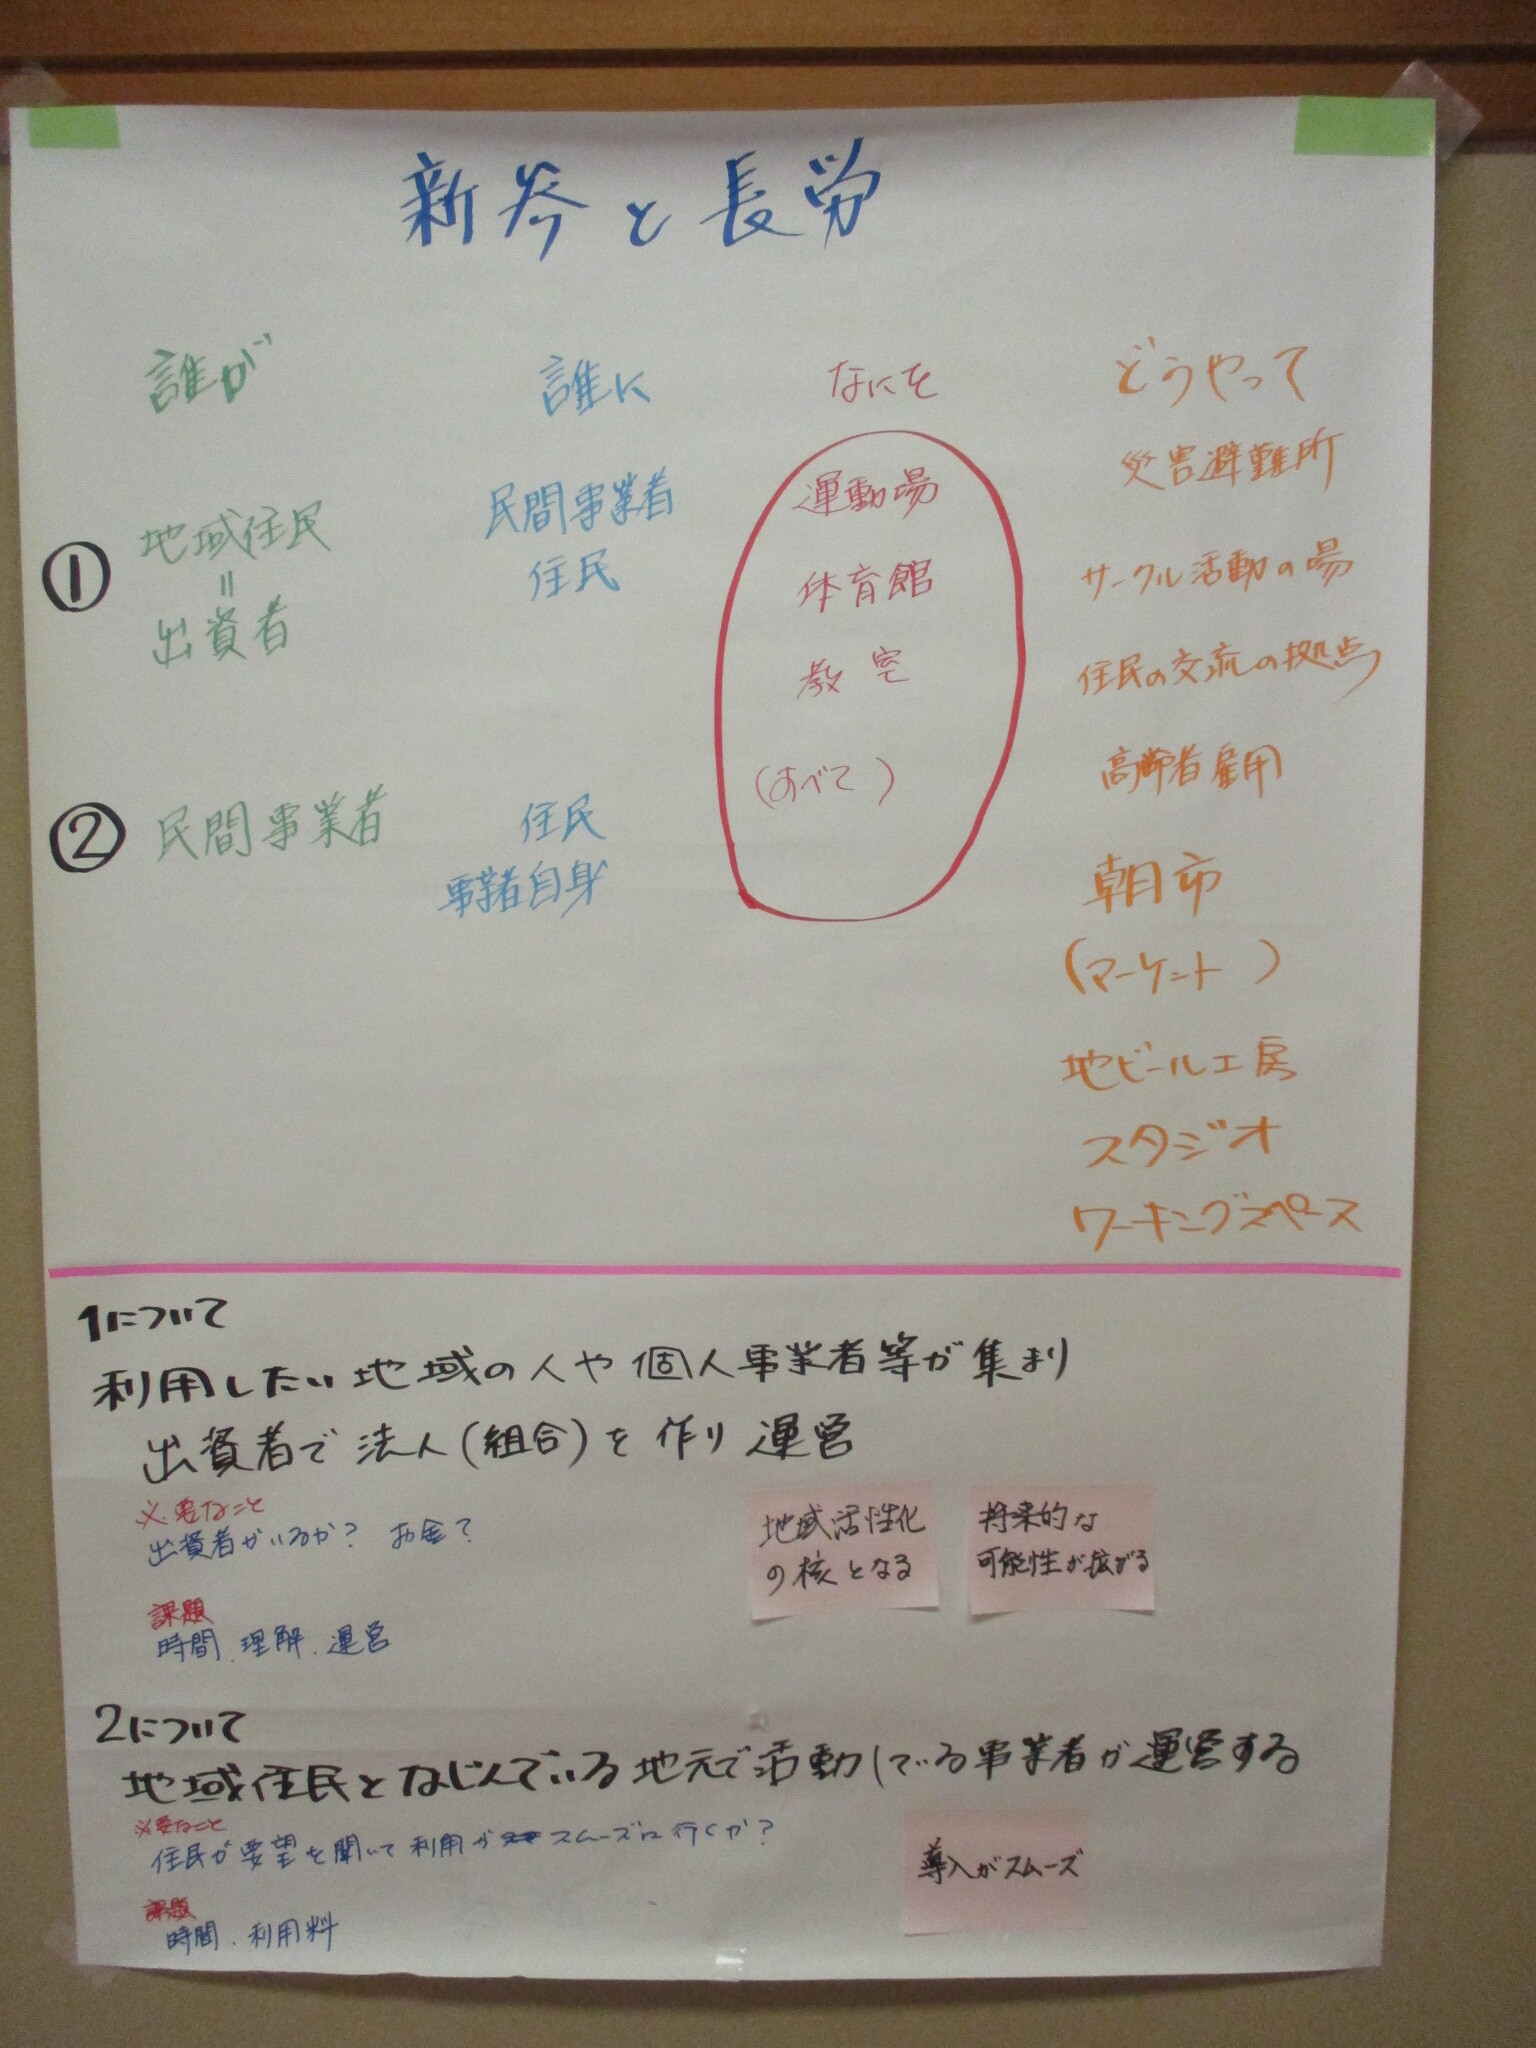 新参と長労
誰が
誰に
なにを
どうやって
①
地域住民
=
出資者
民間事業者
住民
運動場
体育館
教室
(すべて)
災害避難所
サークル活動の場
住民の交流の拠点
高齢者雇用
朝市
(マーケット)
地ビール工房
スタジオ
ワーキングスペース
②
民間事業者
住民
事業者自身
1について
利用したい地域の人や個人事業者等が集まり
出資者で法人(組合)を作り運営
必要なこと
出資者がいるか? お金?
課題
時間、理解、運営
地域活性化
の核となる
将来的な
可能性が拡がる
2について
地域住民となじんでいる地元で活動している事業者が運営する
必要なこと
住民が要望を聞いて利用がスムーズに行くか?
課題
時間、利用料
導入がスムーズ